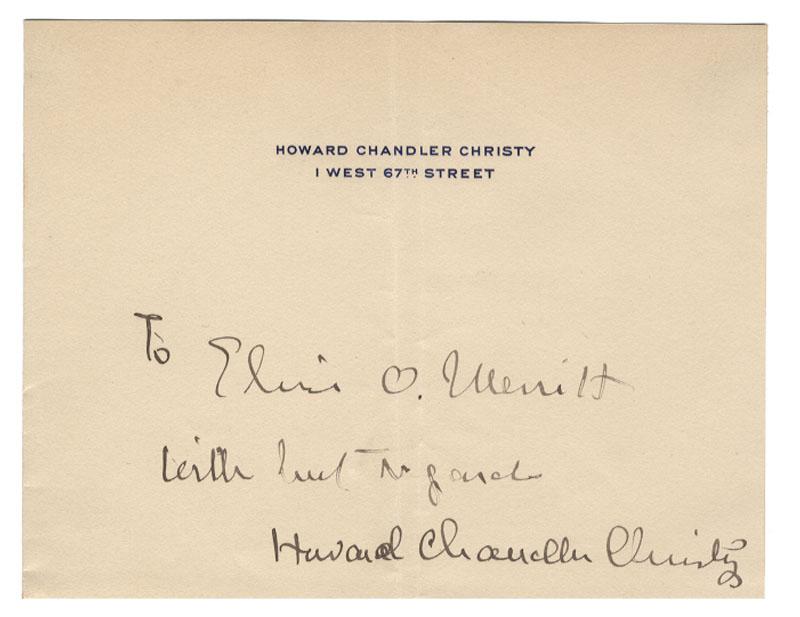 HOWARD CHANDLER CHRISTY
1 WEST 67TH STREET
To Elvin O. Merritt
With best regards
Howard Chandler Christy